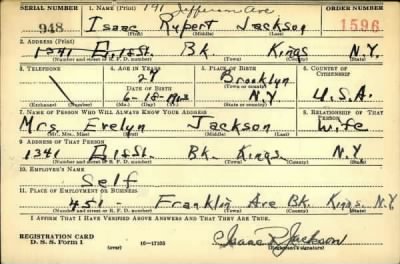 SERIAL NUMBER 1. NAME (Print) 191 Jefferson Ave ORDER NUMBER
948 Isaac Rupert Jackson 1596
(First) (Middle) (Last)
2. ADDRESS (Print)
1341 E. 1st St. Bk. Kings N.Y.
(Number and street or R. F. D. number) (Town) (County) (State)
3. TELEPHONE 4. AGE IN YEARS 5. PLACE OF BIRTH 6. COUNTRY OF CITIZENSHIP
27 Brooklyn
DATE OF BIRTH (Town or county)
6-18-1913 N.Y. U.S.A.
(Exchange) (Number) (Mo.) (Day) (Yr.) (State or country)
7. NAME OF PERSON WHO WILL ALWAYS KNOW YOUR ADDRESS 8. RELATIONSHIP OF THAT PERSON
Mrs Evelyn Jackson Wife
(Mr., Mrs., Miss) (First) (Middle) (Last)
9. ADDRESS OF THAT PERSON
1341 E. 1st St. Bk. Kings N.Y
(Number and street or R. F. D. number) (Town) (County) (State)
10. EMPLOYER'S NAME
Self
11. PLACE OF EMPLOYMENT OR BUSINESS
451 - Franklin Ave Bk. Kings. N.Y.
(Number and street or R. F. D. number) (Town) (County) (State)
I AFFIRM THAT I HAVE VERIFIED ABOVE ANSWERS AND THAT THEY ARE TRUE.
REGISTRATION CARD
D. S. S. Form 1 (over) 16-17105 Isaac R Jackson
(Registrant's signature)